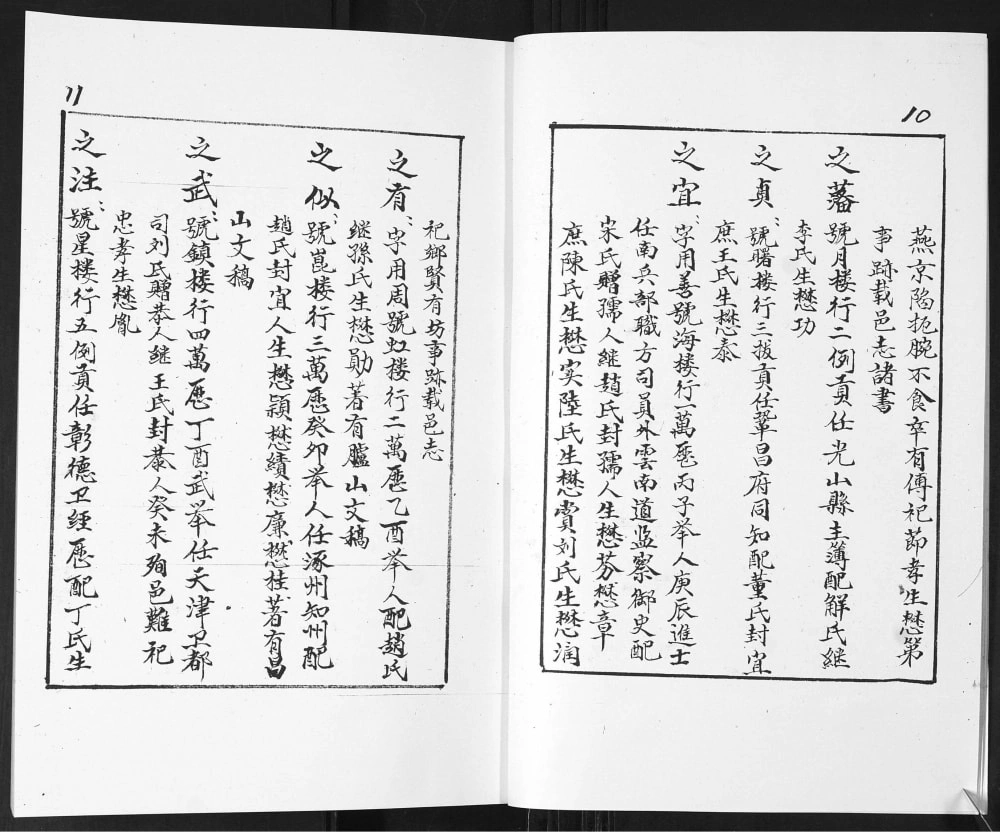 10
燕京陷扼腕不食卒有傳祀節孝生懋第
事跡載邑志諸書
之藩號月楼行二例貢任光山縣主薄配解氏継
李氏生懋功
之貞：號曙楼行三拔貢任鞏昌府同知配董氏封宜
庶王氏生懋泰
之宜：字用善號海楼行一萬厯丙子举人庚辰進士
任南兵部職方司員外雲南道监察御史配
宋氏贈孺人継趙氏封孺人生懋芬懋章
庶陳氏生懋实陸氏生懋赏刘氏生懋润
11
祀鄉賢有坊事跡载邑志
之有：字用周號虹楼行二萬厯乙酉举人配趙氏
继孫氏生懋勛著有臚山文稿
之似：號崑楼行三萬厯癸卯举人任涿州知州配
趙氏封宜人生懋颖懋績懋廉懋桂著有昌
山文稿
之武：號鎮楼行四萬厯丁酉武举任天津卫都
司刘氏赠恭人继王氏封恭人癸未殉邑難祀
忠孝生懋胤
之注：號星楼行五例貢任彰德卫经厯配丁氏生